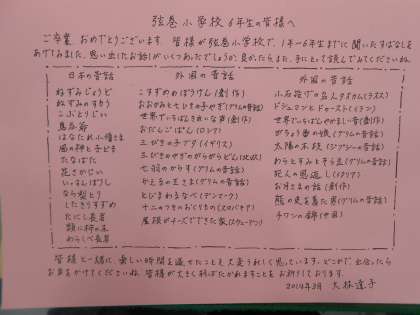 弦巻小学校6年生の皆様へ
ご卒業、おめでとうございます。皆様が弦巻小学校で、1年〜6年生までに聞いたおはなしを
あげてみました。思い出したお話しがいくつあったでしょうか。良かったらまた、手にとって読んでみてくださいね。
日本の昔話
ねずみじょうど
ねずみのすもう
こぶとりじい
鳥呑爺
はなたれ小僧さま
風の神と子ども
たなばた
花さかじい
いっすんぼうし
なら梨とり
したきりすずめ
たにし長者
頭に柿の木
わらしべ長者
外国の昔話
こすずめのぼうけん(創作)
おおかみと七ひきの子やぎ(グリムの昔話)
世界でいちばんきれいな声(創作)
おだんごぱん(ロシア)
三びきの子ブタ(イギリス)
三びきのやぎのがらがらどん(北欧)
七羽のからす(グリムの昔話)
かえるの王さま(グリムの昔話)
とびまわるなべ(デンマーク)
十二のつきのおくりもの(スロバキア)
屋根がチーズでできた家(スウェーデン)
外国の昔話
小石投げの名人タオカム(ラオス)
世界でいちばんやかましい音(創作)
がちょう番の娘(グリムの昔話)
太陽の木の枝(ジプシーの昔話)
わらとすみとそら豆(グリムの昔話)
死人の恩返し
お月さまの話(創作)
熊の皮を着た男(グリムの昔話)
チワンの錦(中国)
皆様と一緒に、楽しい時間を過せたことを大変うれしく思っています。どこかで出会ったら
お声をかけてくださいね。皆様が大きく羽ばたかれますことをお祈りしております。
2014年3月 大林達子